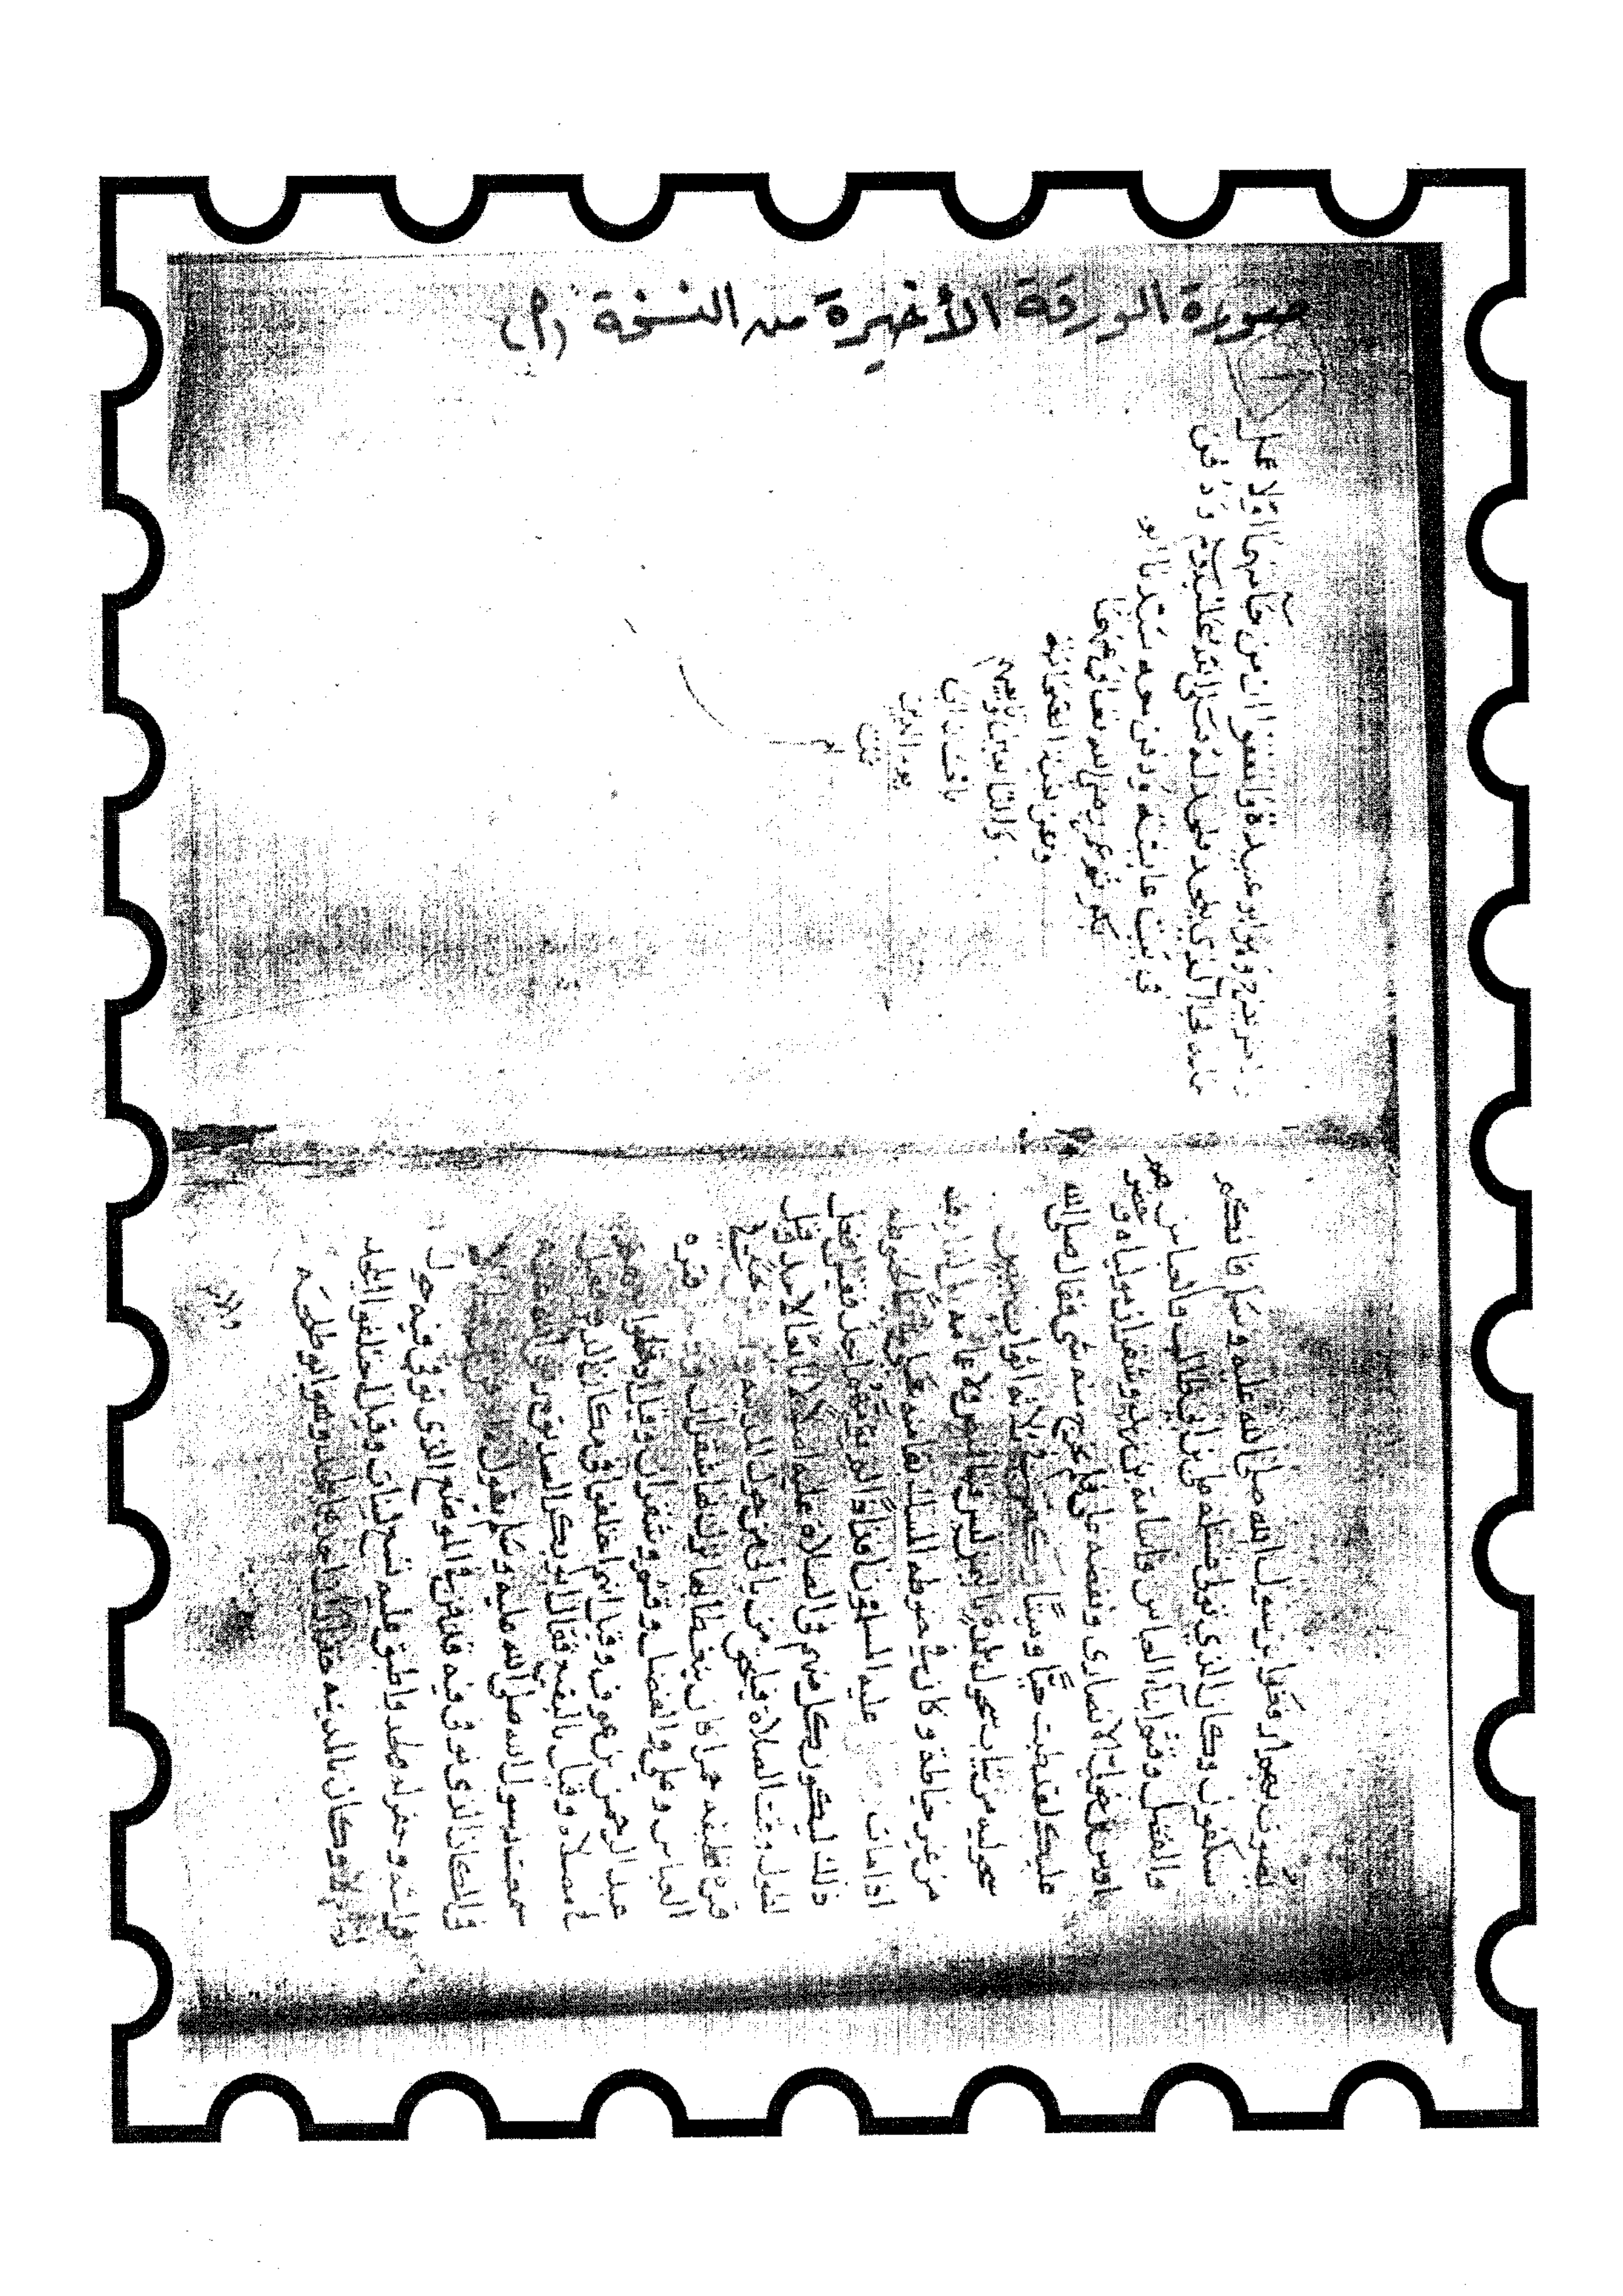 صورة الورقة الأخيرة من النسخة (م)
رسول الله صلى الله عليه وسلم فانكم
ستكفون وكان الذي تولى غسله علي بن ابي طالب والعباس
والفضل وقثم ابناء العباس واسامة بن زيد وشقران مولياه وحضر
اوس بن خولي الانصاري ونفضه علي فلم يخرج منه شي فقال صلى الله
عليك لقد طبت حيا وميتا وكفن في ثلاثة اثواب بيض
سحولية من ثياب سحول بلدة باليمن ليس فيها قميص ولا عمامة
من غير خياطة وكان في حنوطه المسك
عليه المسلمون افذاذا لم يؤمهم احد فقيل فعل
ذلك ليكون كل منهم في الصلاة عليه اصلا لا تابعا لاحد وقيل
ليطول وقت الصلاة فيلحق من ياتي من حول المدينة
قبره قطيفة حمرا كان يتغطا بها نزل بها شقران
العباس وعلي والفضل وقثم وشقران وقيل ادخلوا
عبد الرحمن بن عوف وقيل انهم اختلفوا في مكان الدفن فقيل
مصلاه وقيل بالبقيع فقال ابو بكر الصديق رضي الله عنه
سمعت رسول الله صلى الله عليه وسلم يقول
في المكان الذي توفي فيه فدفن في الموضع الذي توفي فيه حول
فراشه وحفر له ولحد واطبق عليه تسع لبنات وقيل اختلفوا ايلحد
ام لا وكان بالمدينة حفاران احدهما يلحد وهو ابو طلحة
والاخر
يضرح وهو ابو عبيدة واتفقوا ان من جا منهما اولا عمل
عمله فجا الذي يلحد فلحد له صلى الله عليه وسلم ودفن
في بيت عايشة ودفن معه سيدنا ابو
بكر ثم عمر رضي الله تعالى عنهما
وعن بقية الصحابة
والتابعين لهم
باحسان الى
يوم الدين
تمت